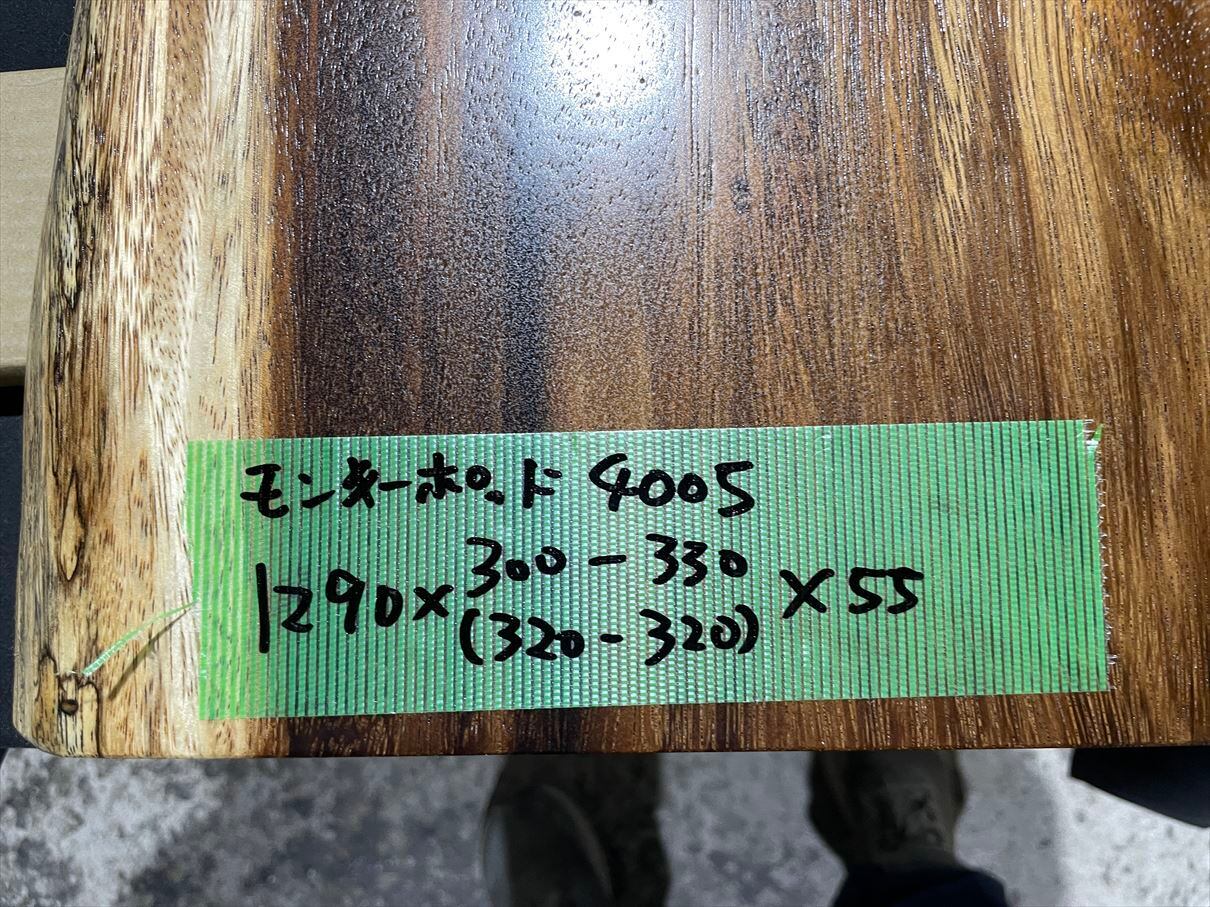 モンキーポッド 4005
1290×300-330×55
(320-320)